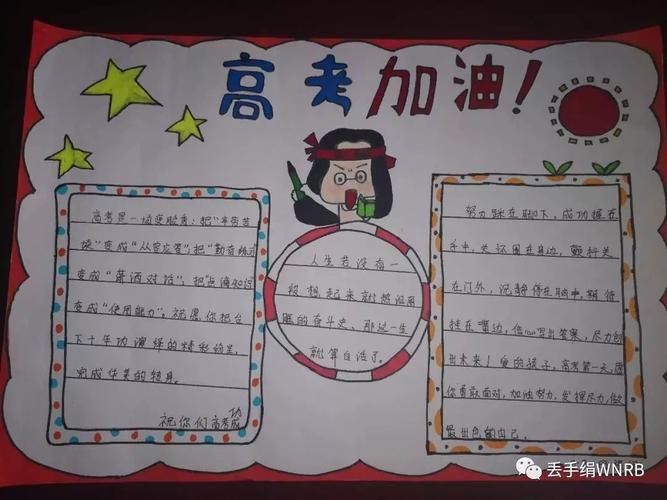 高考加油！
高考是一场变脸秀：把“辛员苦
读”变成“从容应答”，把“勤奋练习”
变成“潇洒对话”，把点滴知识
变成“使用能力”。祝愿你把台
下十年功演绎的精彩纷呈，
完成华美的转身。
祝你们高考成功
人生若没有一
段想起来就热泪盈
眶的奋斗史，那这一生
就算白活了。
努力踩在脚下，成功握在
手中，关怀围在身边，颤抖关
在门外，沉静停在脑中，期待
挂在嘴边，信心写出答案，尽力创
出未来！爱的孩子，高考第一天，愿
你勇敢面对，加油努力，发挥尽力，做
最出色的自己。
丢手绢WNRB